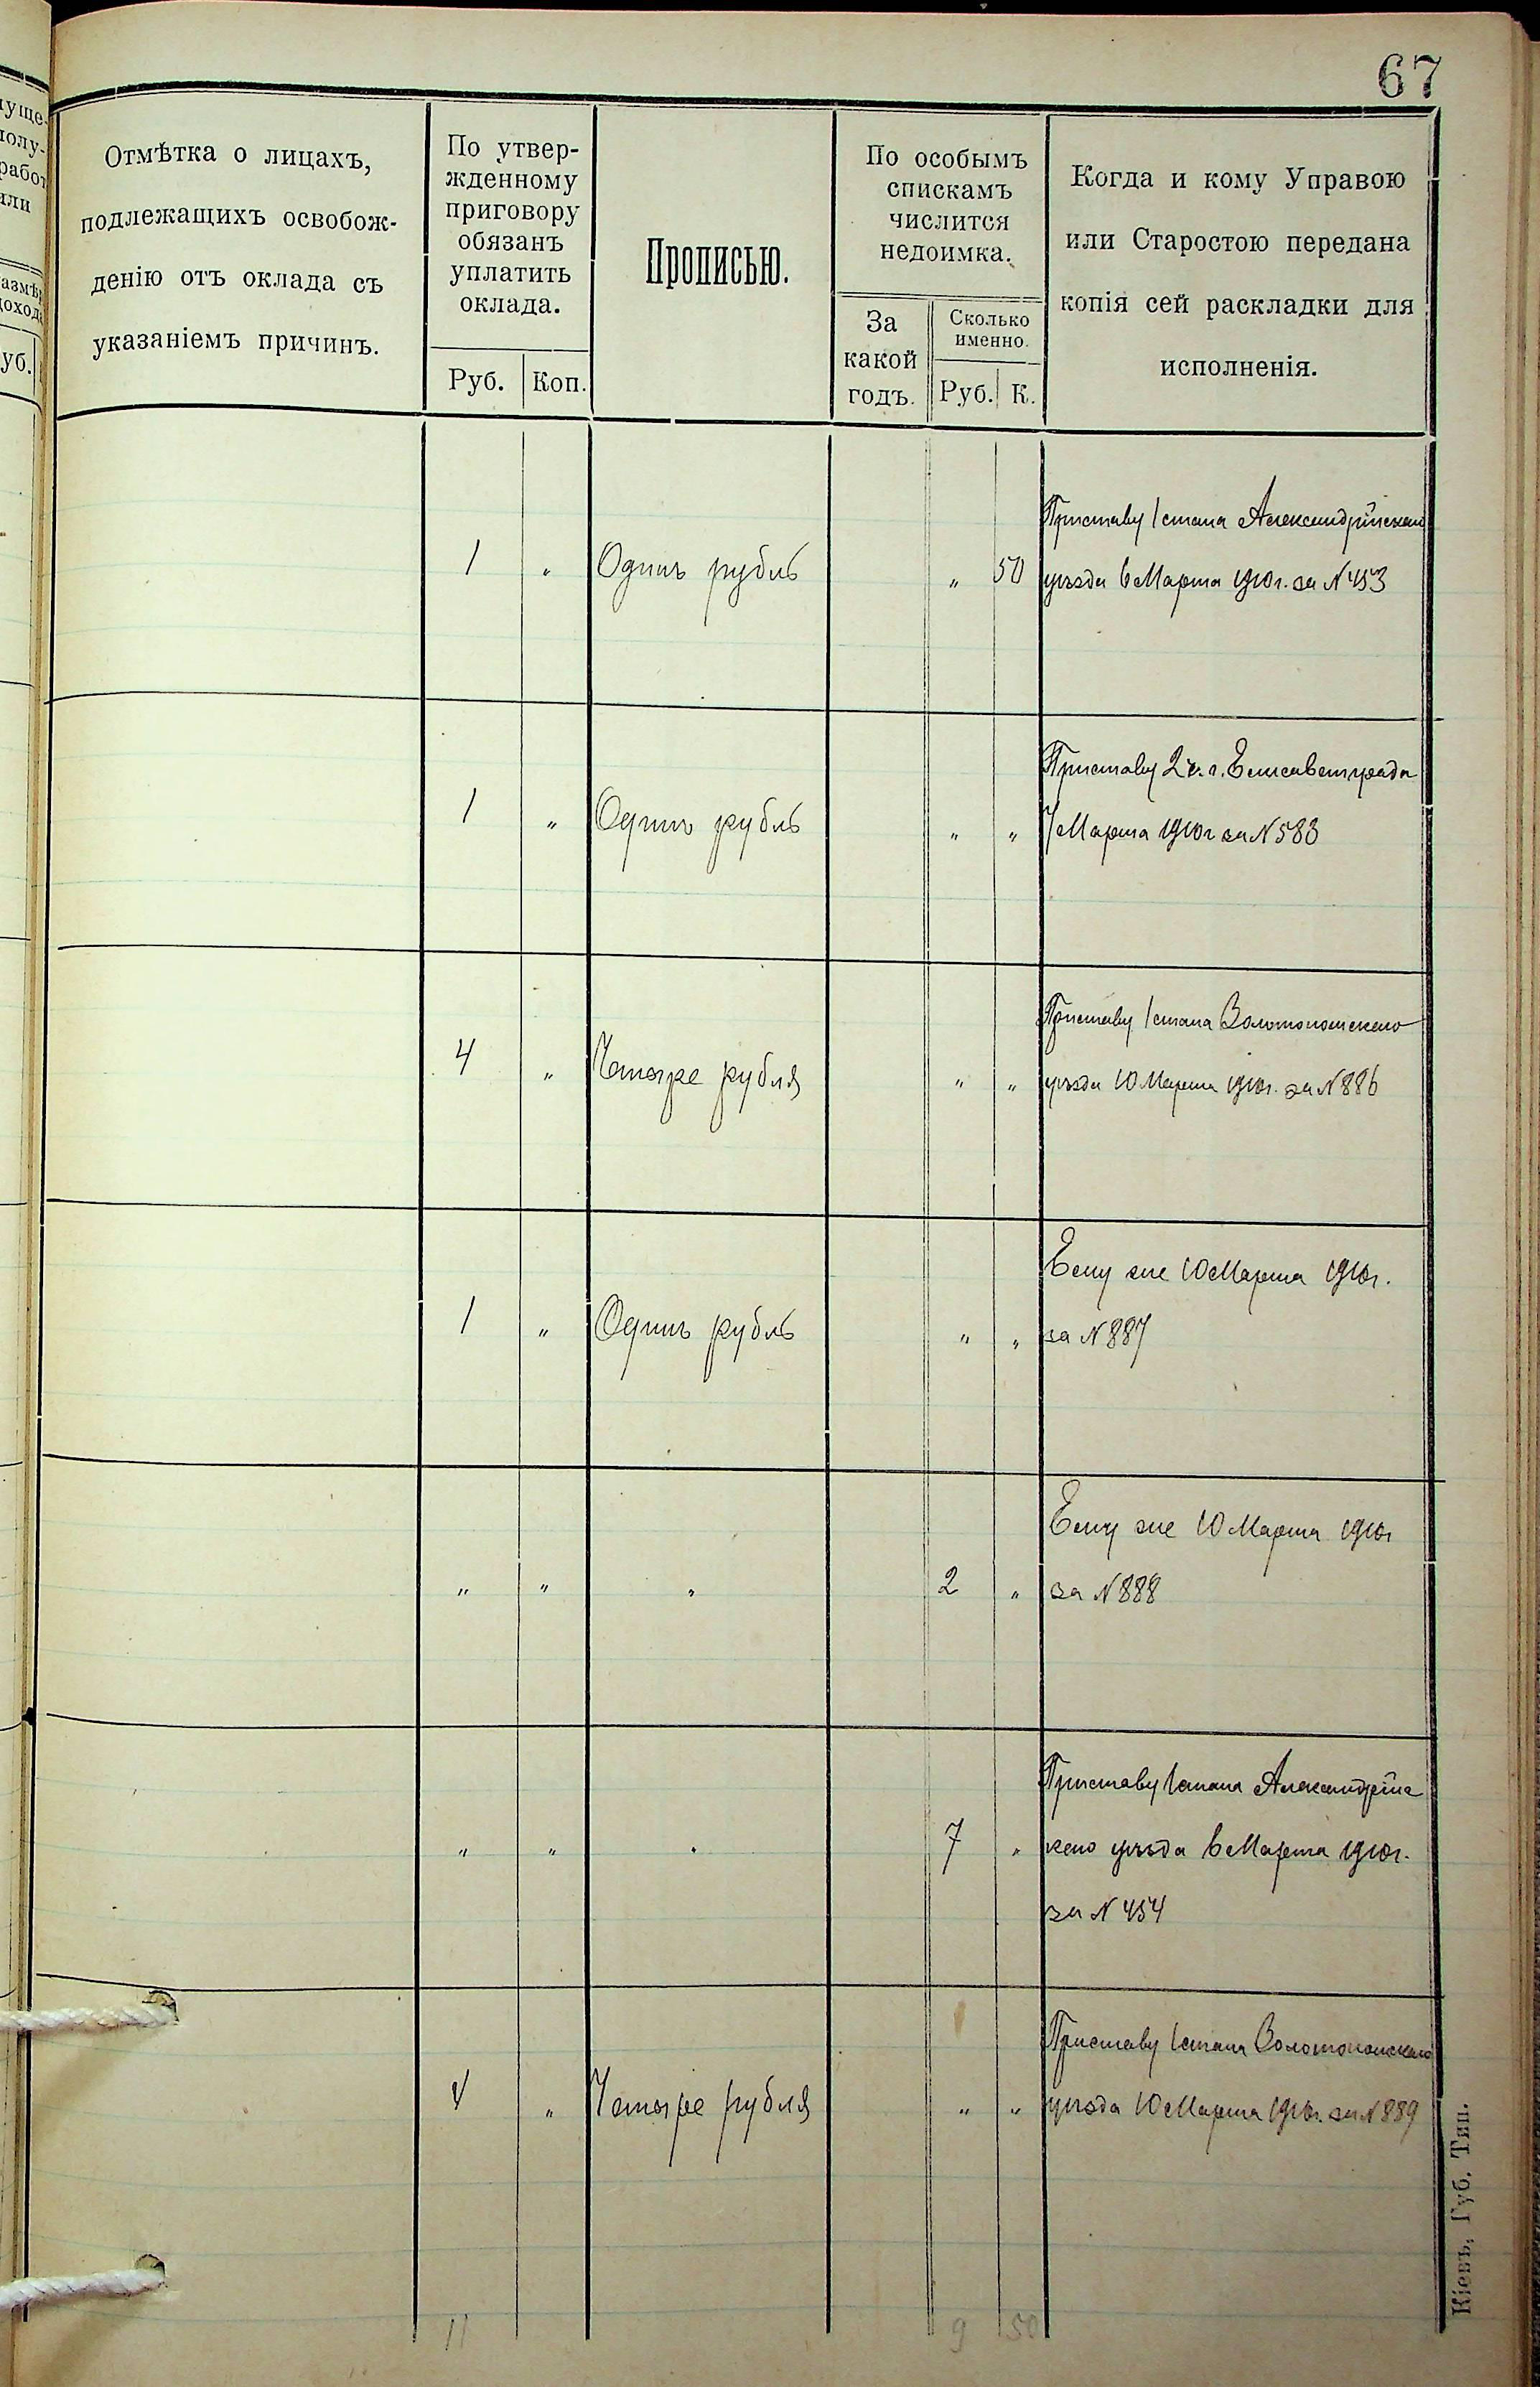 67
уще-
полу-
работ
или
азмѣр
доход
уб.
Отмѣтка о лицахъ,
подлежащихъ освобож-
денію отъ оклада съ
указаніемъ причинъ.
По утвер-
жденному
приговору
обязанъ
уплатить
оклада.
Руб. Коп.
Прописью.
По особымъ
спискамъ
числится
недоимка.
За
какой
годъ.
Сколько
именно.
Руб. К.
Когда и кому Управою
или Старостою передана
копія сей раскладки для
исполненія.
Приставу 1 стана Александрійскаго
1 " Одинъ рубль " 50 уѣзда 6 Марта 1910г. за N 453
Приставу 2 ч. г. Елисаветграда
1 " Одинъ рубль " " 7 Марта 1910г за N 583
Приставу 1 стана Золотоношскаго
4 " Четыре рубля " " уѣзда 10 Марта 1910г. за N 886
Ему же 10 Марта 1910г.
1 " Одинъ рубль " " за N 887
Ему же 10 Марта 1910г
" " " 2 " за N 888
Приставу 1 стана Александрійс
" " " 7 " каго уѣзда 6 Марта 1910г.
за N 454
Приставу 1 стана Золотоношскаго
4 " Четыре рубля " " уѣзда 10 Марта 1910г. за N 889
11 9 50
Кіевъ, Губ. Тип.